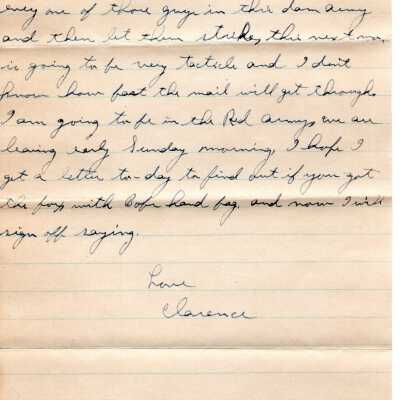 every one of those guys in this dam army
and then let them strike, this next mo,
is going to be very tactile and I don't
know how fast the mail will get through.
I am going to be in the Red army, we are
leaving early Sunday morning, I hope I
get a letter to-day to find out if you got
the box with Bob's hand bag, and now I will
sign off saying.
Love
Clarence